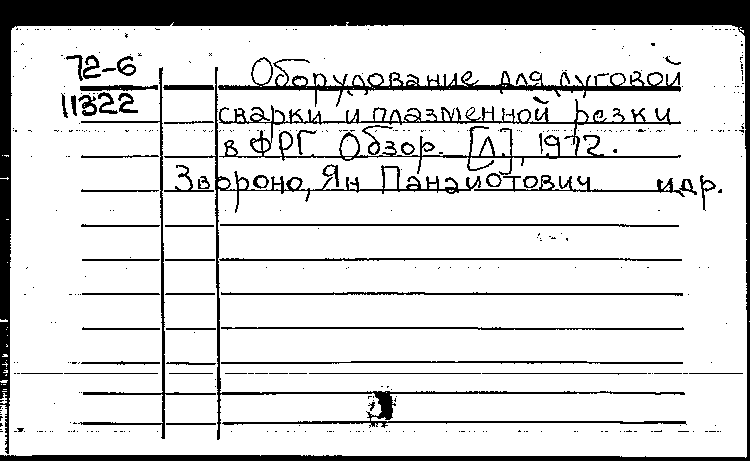 72-6
11322
Оборудование для дуговой
сварки и плазменной резки
в ФРГ. Обзор. [Л.], 1972.
Звороно, Ян Панаиотович и др.